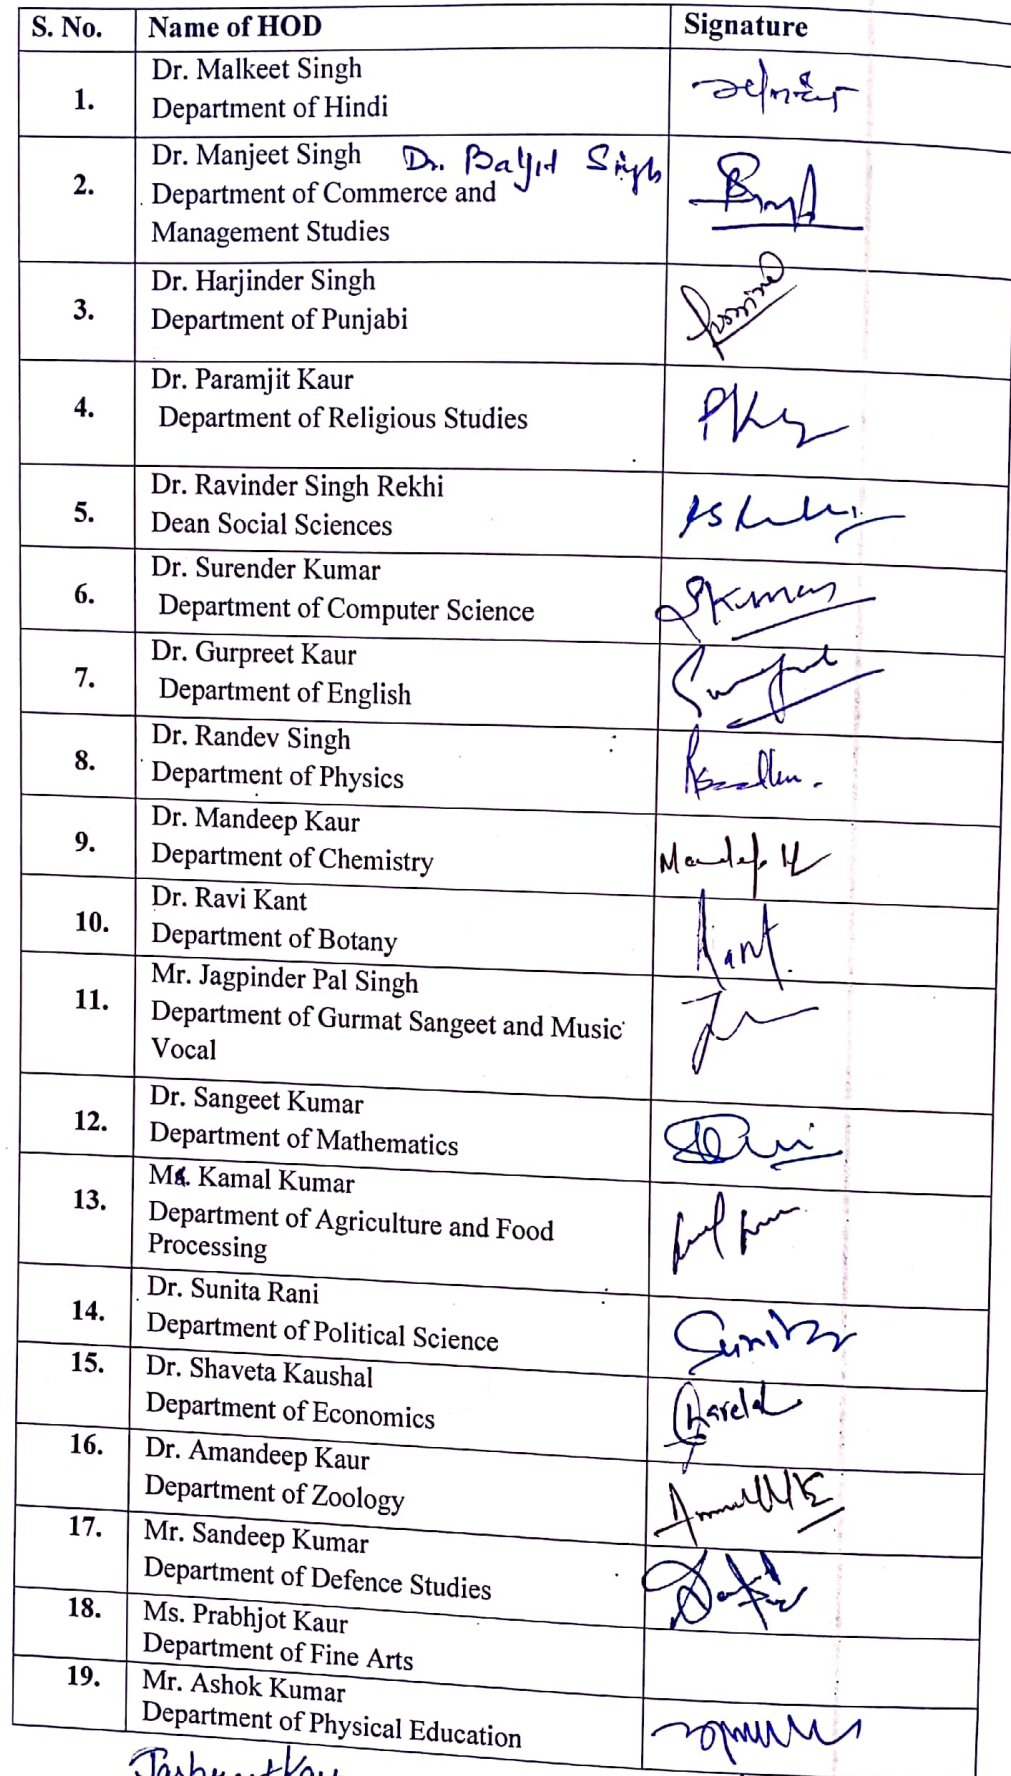 S. No. Name of HOD Signature
1. Dr. Malkeet Singh
Department of Hindi
2. Dr. Manjeet Singh Dr. Baljit Singh
Department of Commerce and
Management Studies
3. Dr. Harjinder Singh
Department of Punjabi
4. Dr. Paramjit Kaur
Department of Religious Studies
5. Dr. Ravinder Singh Rekhi
Dean Social Sciences
6. Dr. Surender Kumar
Department of Computer Science
SKumar
7. Dr. Gurpreet Kaur
Department of English
8. Dr. Randev Singh
Department of Physics
9. Dr. Mandeep Kaur
Department of Chemistry
Mandeep K
10. Dr. Ravi Kant
Department of Botany
Kant
11. Mr. Jagpinder Pal Singh
Department of Gurmat Sangeet and Music
Vocal
12. Dr. Sangeet Kumar
Department of Mathematics
13. Kamal Kumar
Department of Agriculture and Food
Processing
14. Dr. Sunita Rani
Department of Political Science
Sunita
15. Dr. Shaveta Kaushal
Department of Economics
16. Dr. Amandeep Kaur
Department of Zoology
17. Mr. Sandeep Kumar
Department of Defence Studies
18. Ms. Prabhjot Kaur
Department of Fine Arts
19. Mr. Ashok Kumar
Department of Physical Education